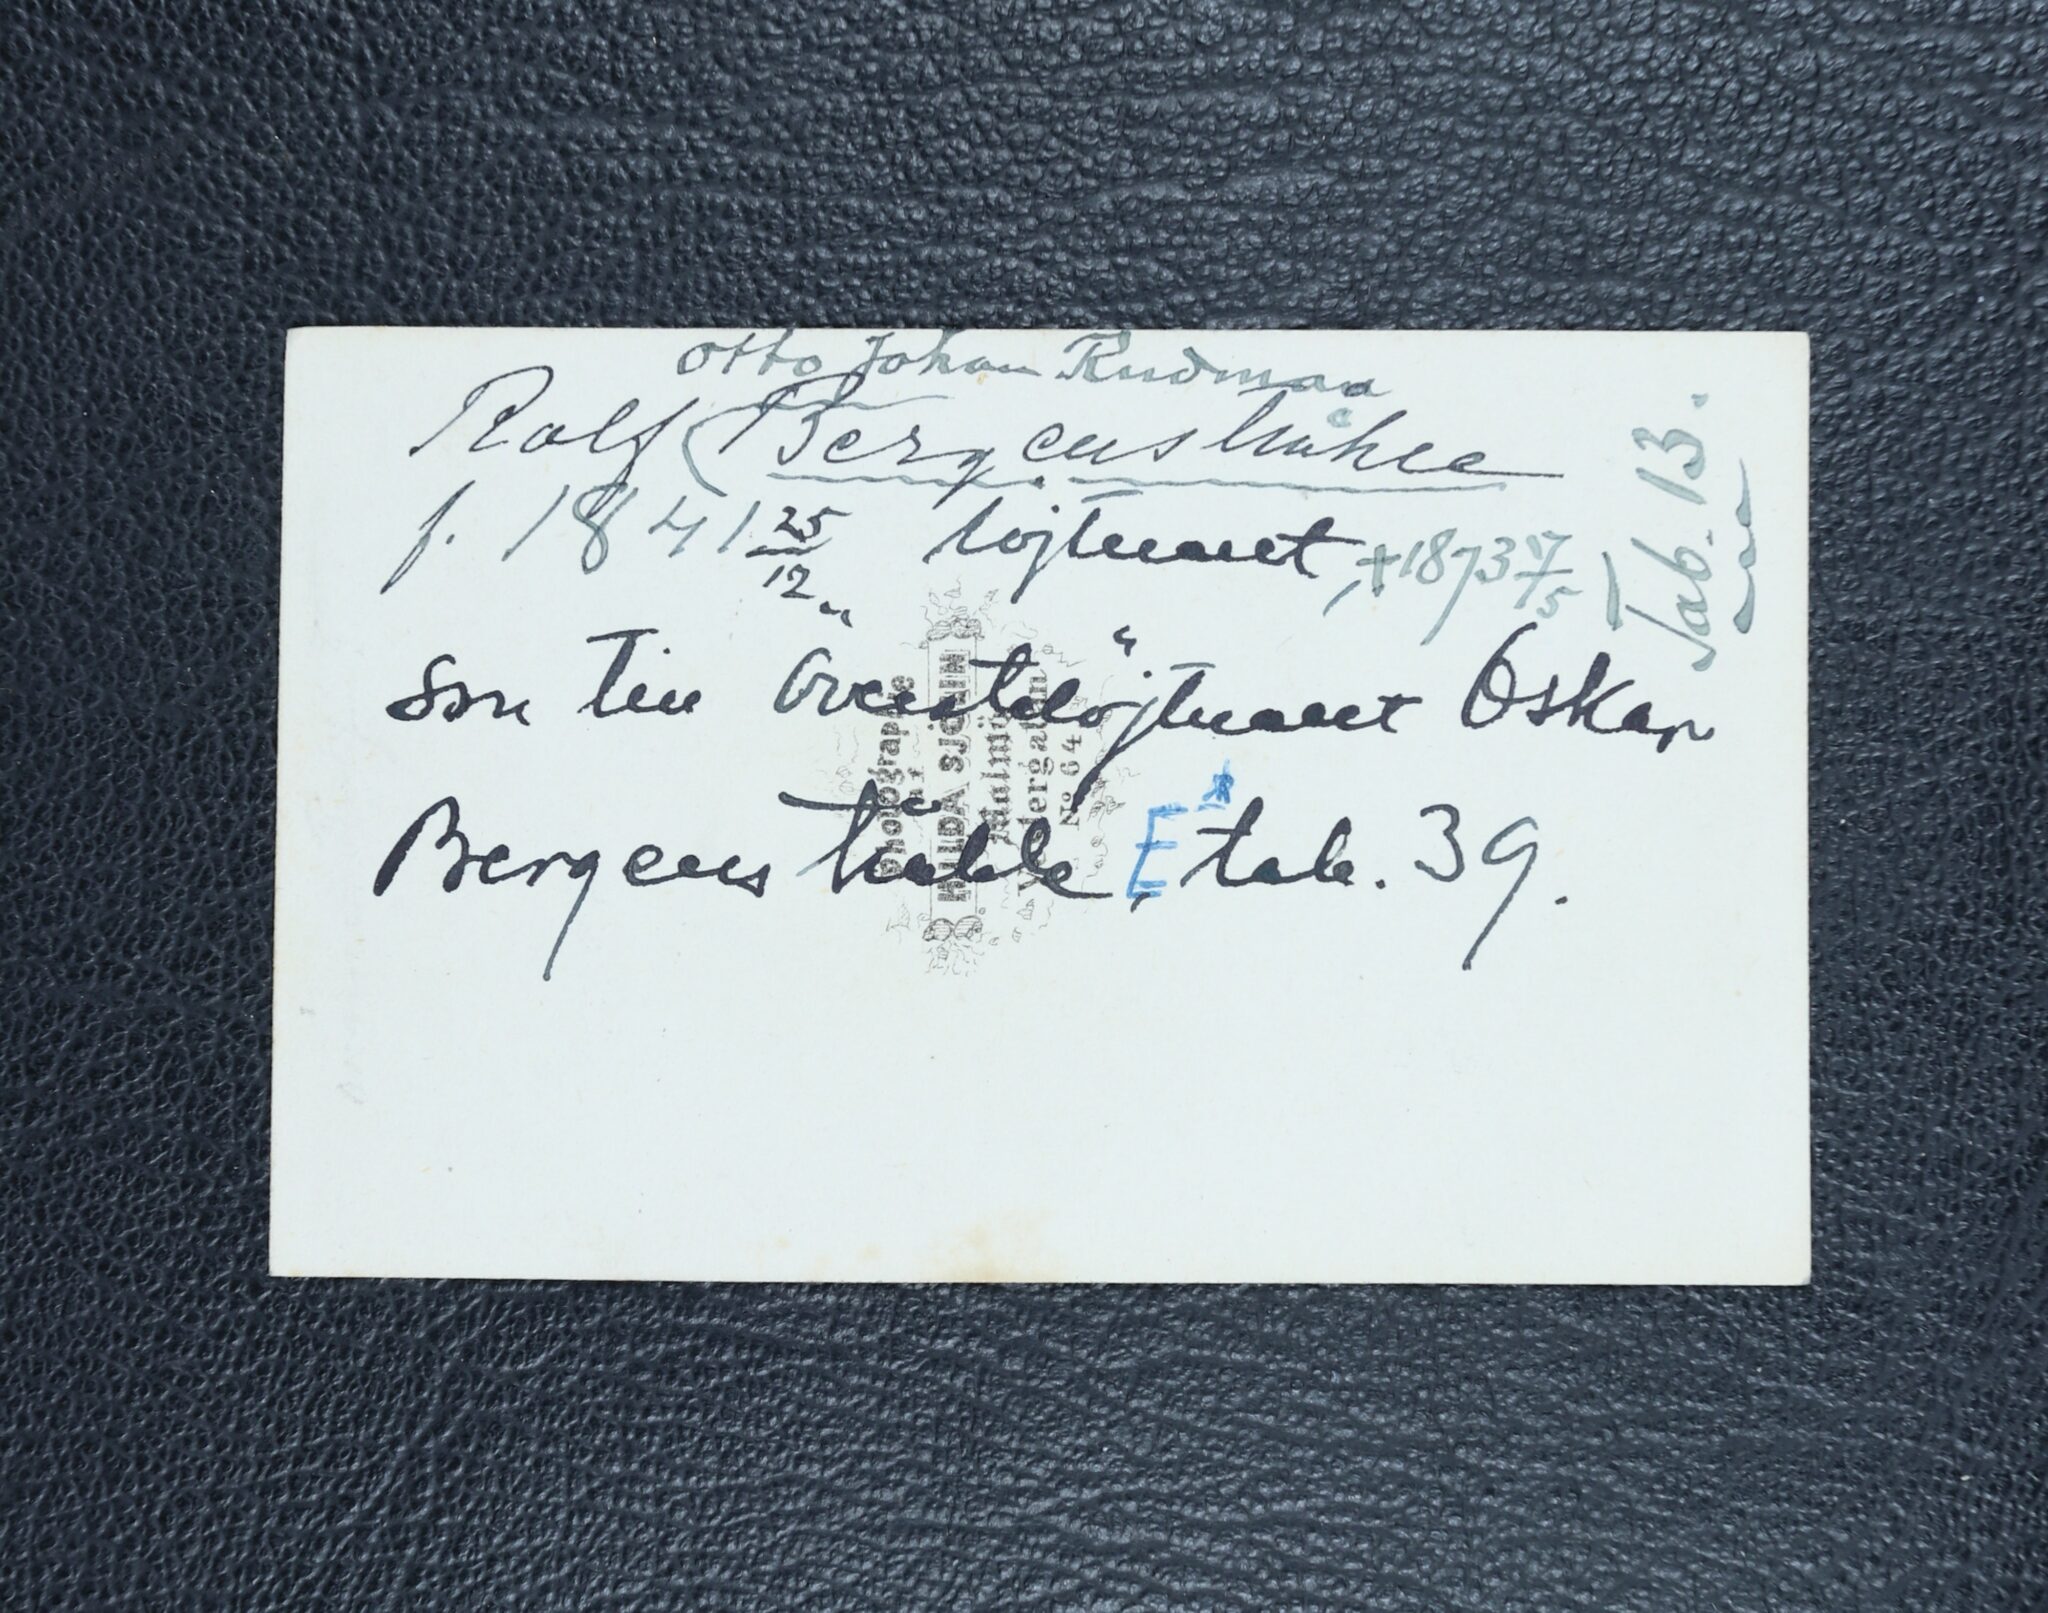 Otto Johan Rudman
Rolf Bergenstråhle
f. 1841 25/12 löjtnant, +1873 17/5
Tab. 13.
son till överstelöjtnant Oskar
Bergenstråhle, E tab. 39.
Photographie
af
HILDA SJÖLIN
Malmö
Vestergatan
No 64